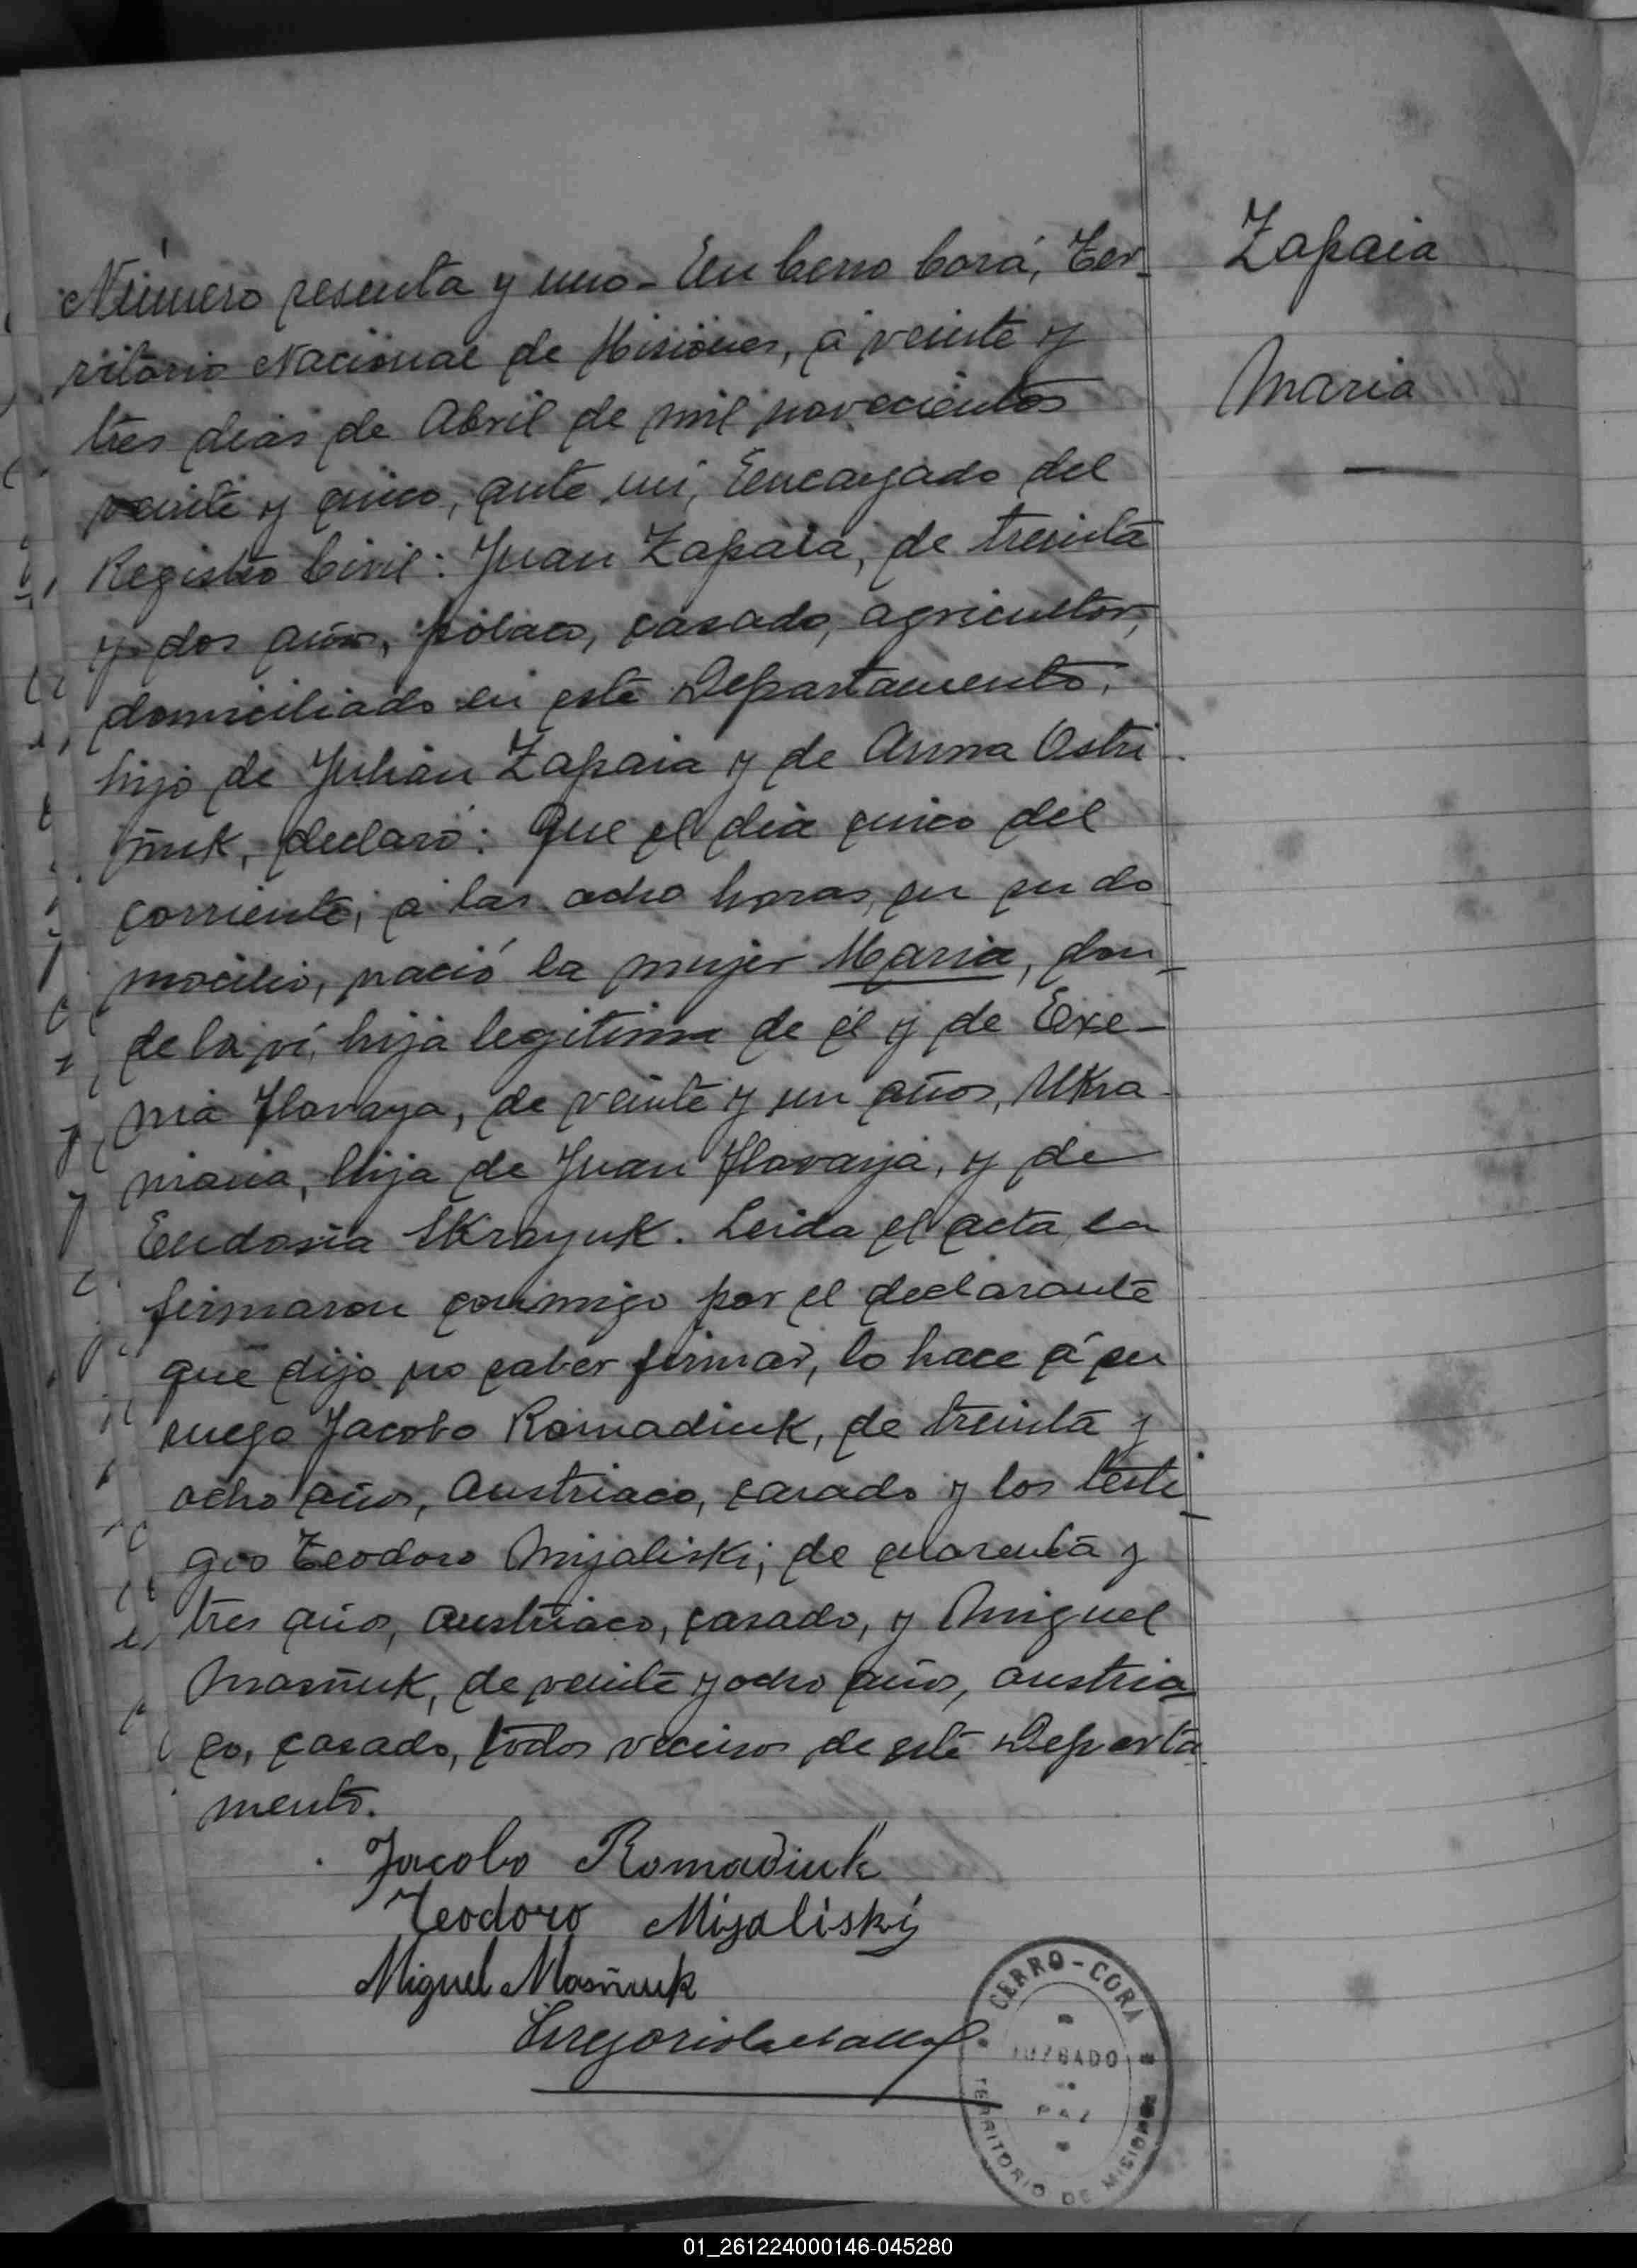 Número sesenta y uno - En Cerro Corá, Ter-
ritorio Nacional de Misiones, á veinte y
tres dias de Abril de mil novecientos
veinte y cinco, ante mi, Encargado del
Registro Civil: Juan Zapaia, de treinta
y dos años, polaco, casado, agricultor,
domiciliado en este Departamento,
hijo de Julian Zapaia y de Anna Ostri
ñuk, declaró: Que el dia cinco del
corriente, á las ocho horas, en su do
micilio, nació la mujer Maria, don-
de la ví, hija legitima de él y de Exe-
nia Hovaya, de veinte y un años, Ukra-
niana, hija de Juan Hovaya, y de
Eudosia Skrayuk. Leida el acta, la
firmaron conmigo por el declarante
que dijo no saber firmar, lo hace á su
ruego Jacobo Romadiuk, de treinta y
ocho años, Austriaco, casado y los testi-
gos Teodoro Mijaliski, de cuarenta y
tres años, austriaco, casado, y Miguel
Masñuk, de veinte y ocho años, austria-
co, casado, todos vecinos de este Departa
mento.
Jacobo Romadiuk
Teodoro Mijaliskij
Miguel Masñuk
Gregorio
Zapaia
Maria
CERRO-CORÁ
JUZGADO
PAZ
TERRITORIO DE MISIONES
01_261224000146-045280